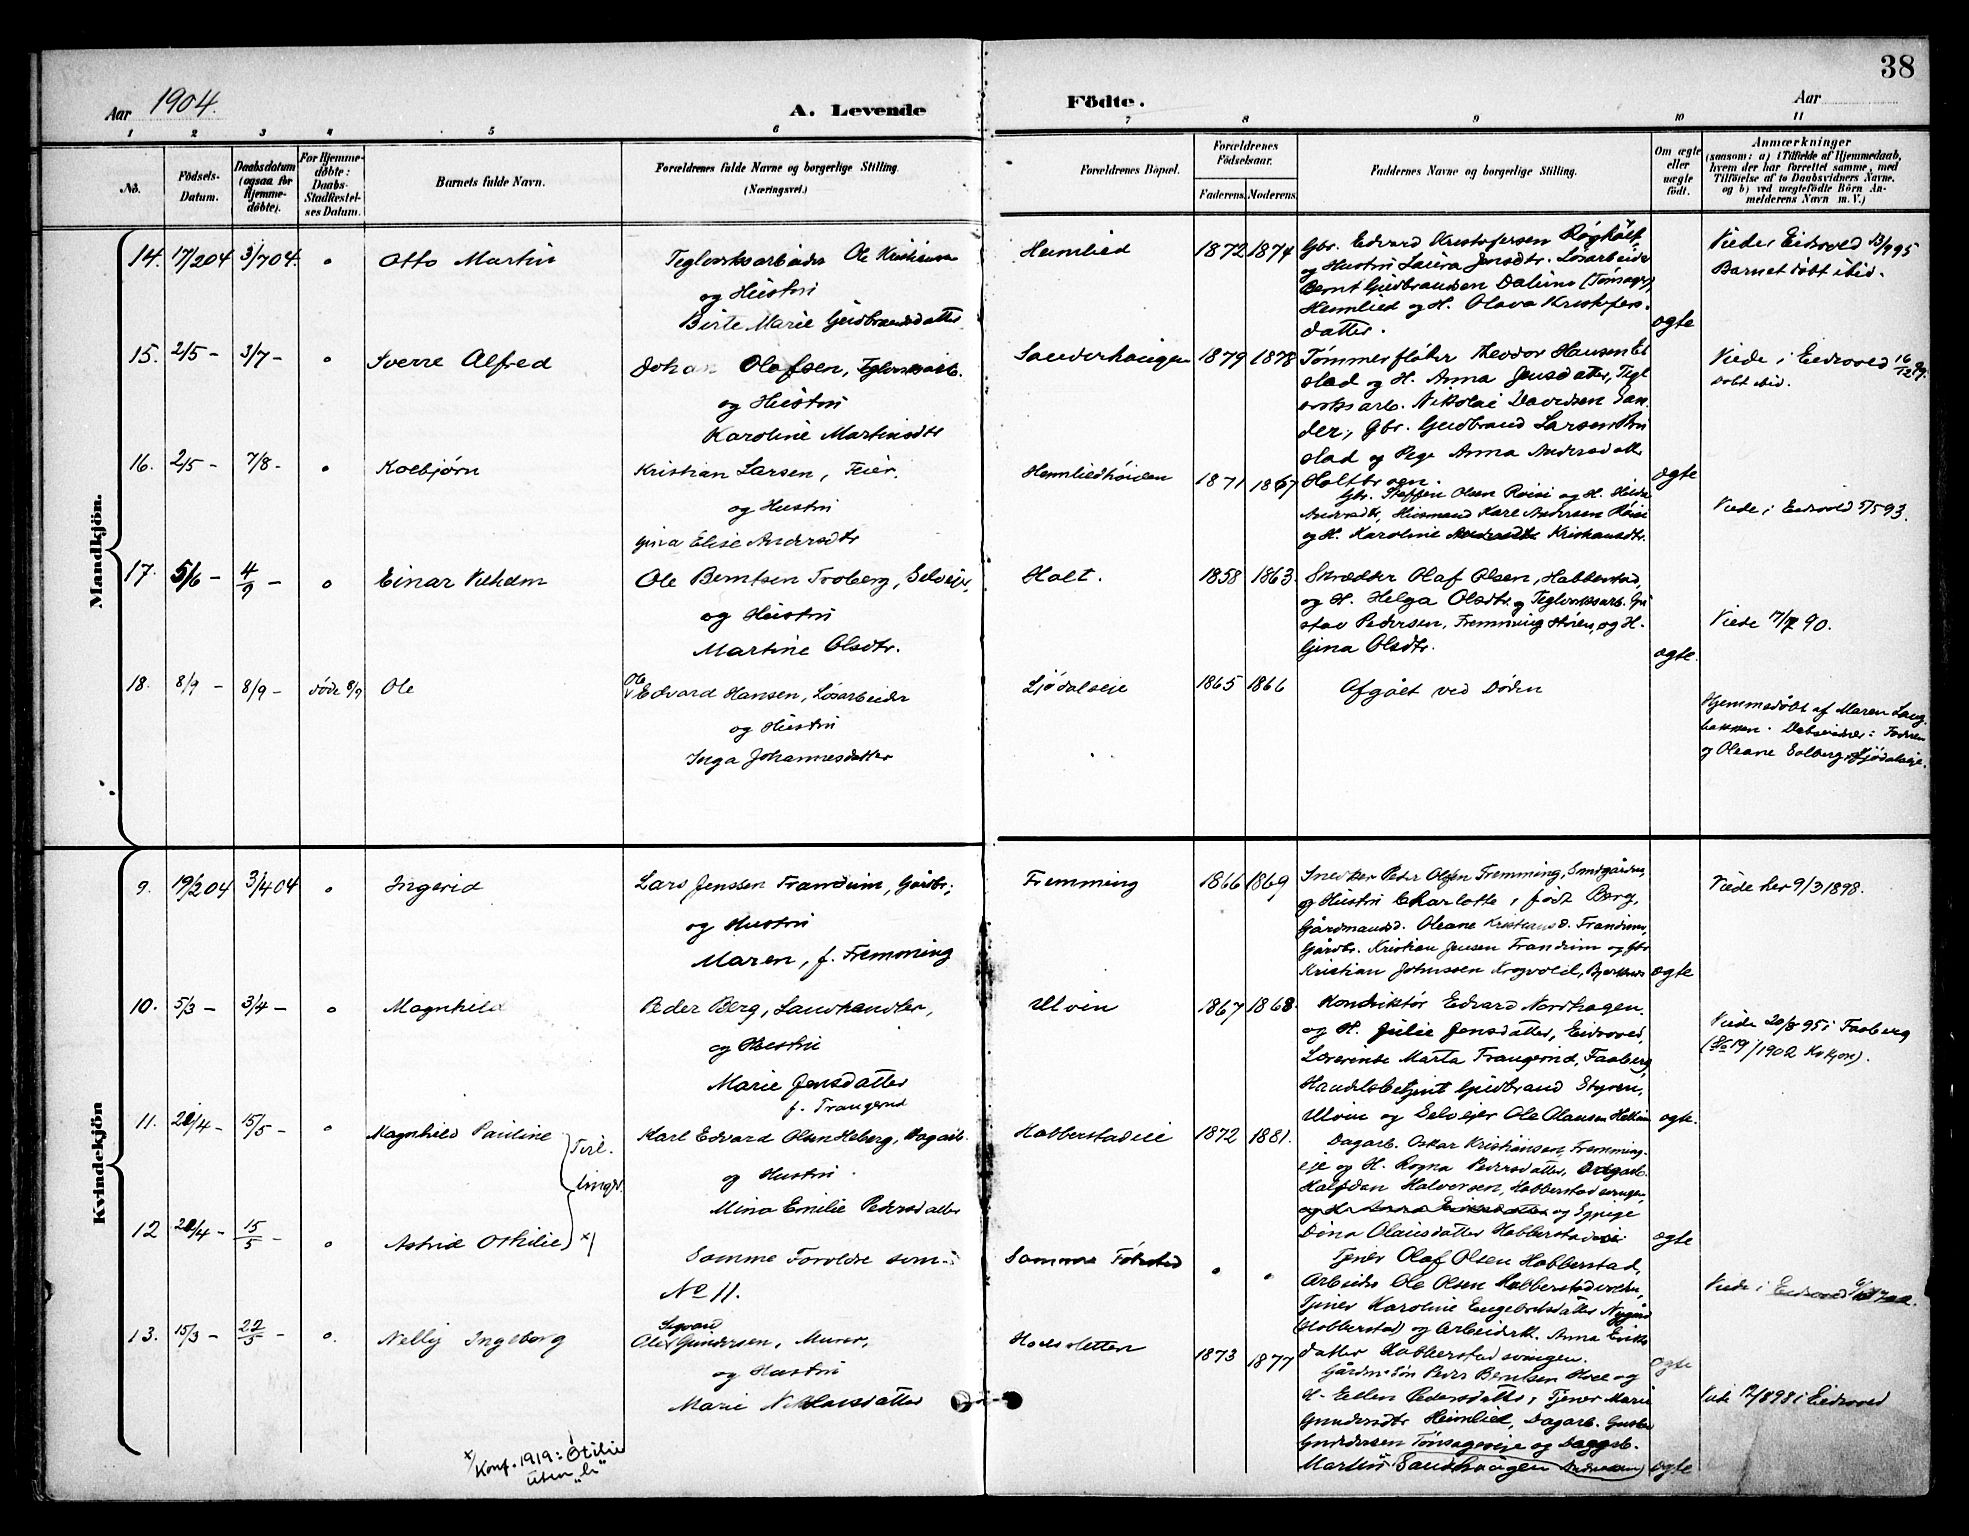 38
Aar 1904.
A. Levende
Födte.
Aar
1 2 3 4 5 6 7 8 9 10 11
No.
Födsels-
Datum.
Daabsdatum
(ogsaa for
Hjemme-
döbte).
For Hjemme-
döbte:
Daabs-
Stadfæstel-
ses Datum.
Barnets fulde Navn.
Forældrenes fulde Navne og borgerlige Stilling.
(Næringsvei.)
Forældrenes Bopæl.
Forældrenes
Födselsaar.
Faderens. Moderens.
Faddernes Navne og borgerlige Stilling.
Om ægte
eller
uægte
födt.
Anmærkninger
(saasom: a) i Tilfælde af Hjemmedaab,
hvem der har forrettet samme, med
Tilföielse af to Daabsvidners Navne,
og b) ved uægtefödte Börn An-
melderens Navn m. V.)
Mandkjön.
14. 17/2 04 3/7 04. Otto Martin
Teglverksarbeider Ole Kristiansen
og Hustru
Birte Marie Gudbrandsdatter
Heimlied 1872 1874
Gbr. Edvard Kristofersen
og Hustru Laura Jensdtr. Løsarbeider
Bernt Gudbrandsen Dalum (Tønsager),
Heimlied og H. Olava Kristofers-
datter.
ægte
Viede i Eidsvold
Barnet døbt ibid.
15. 2/5 - 3/7 - Sverre Alfred
Johan Olafsen, Teglverksarb.
og Hustru
Karoline Martinsdtr
Sanderhaugen 1879 1878
Tømmerfløter Theodor Hansen El
stad og H. Anna Jensdatter, Tegl
verksarb. Nikolai Davidsen San
der, Gbr. Gudbrand Larsen
stad og Pige Anna Andersdatter
Holtbrøen.
ægte
Viede i Eidsvold 16/12 99.
døbt ibid.
16. 2/5 - 7/8 - Kolbjørn
Kristian Larsen, Feier.
og Hustru
Gina Elise Andersdtr
Heimliedhøiden 1871 1867
Gbr. Steffen Olsen Roise og H. Hilda
Andersdtr, Husmand Karl Andersen Røise
og H. Karoline Kristiansdtr.
Viede i Eidsvold 5/5 93.
17. 5/6 - 4/9 - Einar Vilhelm
Ole Berntsen Troberg, Selveier,
og Hustru
Martine Olsdtr.
Holt. 1858 1863.
Skrædder Olaf Olsen, Habberstad,
og H. Helga Olsdtr. og Teglverksarb. Gu
stav Pedersen, Fremming Høien, og H.
Gina Olsdtr.
ægte.
Viede 17/7 90.
18. 8/9 - 8/9 - døde 8/9 Ole
Ole
Edvard Hansen, Løsarbeider
og Hustru
Inga Johannesdatter
Ljødalseie 1865 1866
Afgået ved Døden
Hjemmedøbt af Maren Laug-
bakken. Dåbsvidner: Fadren
og Oleane Solberg, Ljødalseie.
Kvindekjön
9. 19/2 04 3/4 04 Ingerid
Lars Jenssen Frandum, Gårdbr.,
og Hustru
Maren, f. Fremming
Fremming 1866 1869
Snedker Peder Olsen Fremming, Smedgården,
og Hustru Charlotte, født Berg,
Gårdmandsd. Oleane Kristiansd. Frandum,
Gårdbr. Kristian Jensen Frandum og Gbr
Kristian Johnssen Krogvold,
ægte
Viede her 9/3 1898.
10. 5/3 - 3/4 - Magnhild
Peder Berg, Landhandler,
og Hustru
Marie Jensdatter
f. Traugerud
Ulvin 1867 1868.
Konduktør Edvard Nordhagen
og H. Julie Jensdatter, Eidsvold,
Lærerinde Marta Traugerud, Faaberg,
Handelsbetjent Gudbrand Styren,
Ulvin og Selveier Ole Olausen
ægte.
Viede 20/8 95 i Faaberg
11. 20/4 - 15/5 - Magnhild Pauline
Tvil-
linger.
Karl Edvard Olsen Heberg, Dagarb.
og Hustru
Mina Emilie Pedersdatter
Habberstadeie 1872 1881.
Dagarb. Oskar Kristiansen, Fremming-
eie og H. Ragna Pedersdatter, Dagarb.
Halfdan Halvorsen, Habberstadsvingen,
og Pige
Dina Olausdatter Habberstadeie
ægte
12 20/4 - 15/5 - Astrid Othilie x)
Samme Foreldre som
No 11.
Samme Fødested
Tjener Olaf Olsen Habberstad,
Arbeider Ole Olsen Habberstadvolden,
Tjener Karoline Engebretsdatter Nygård
(Habberstad) og Arbeidersk. Anna Eriks
datter Habberstadsvingen.
ægte
Viede i Eidsvold
13. 15/3 - 22/5 - Nelly Ingeborg
Sigvard
Ole Gundersen, Murer,
og Hustru
Marie Nikolausdatter
Hoelsletten 1873 1877
Gårdm.søn Peder Berntsen Hoel og
H. Ellen Pedersdatter, Tjener Marie
Gundersdtr Heimlied, Dagarb. Gustav
Gundersen Tønsagereie og Dagarb.
Martin Sandhaugen
ægte
Viede 12/8 98 i Eidsvold
x/ Konf. 1919: Otilie
uten „h"